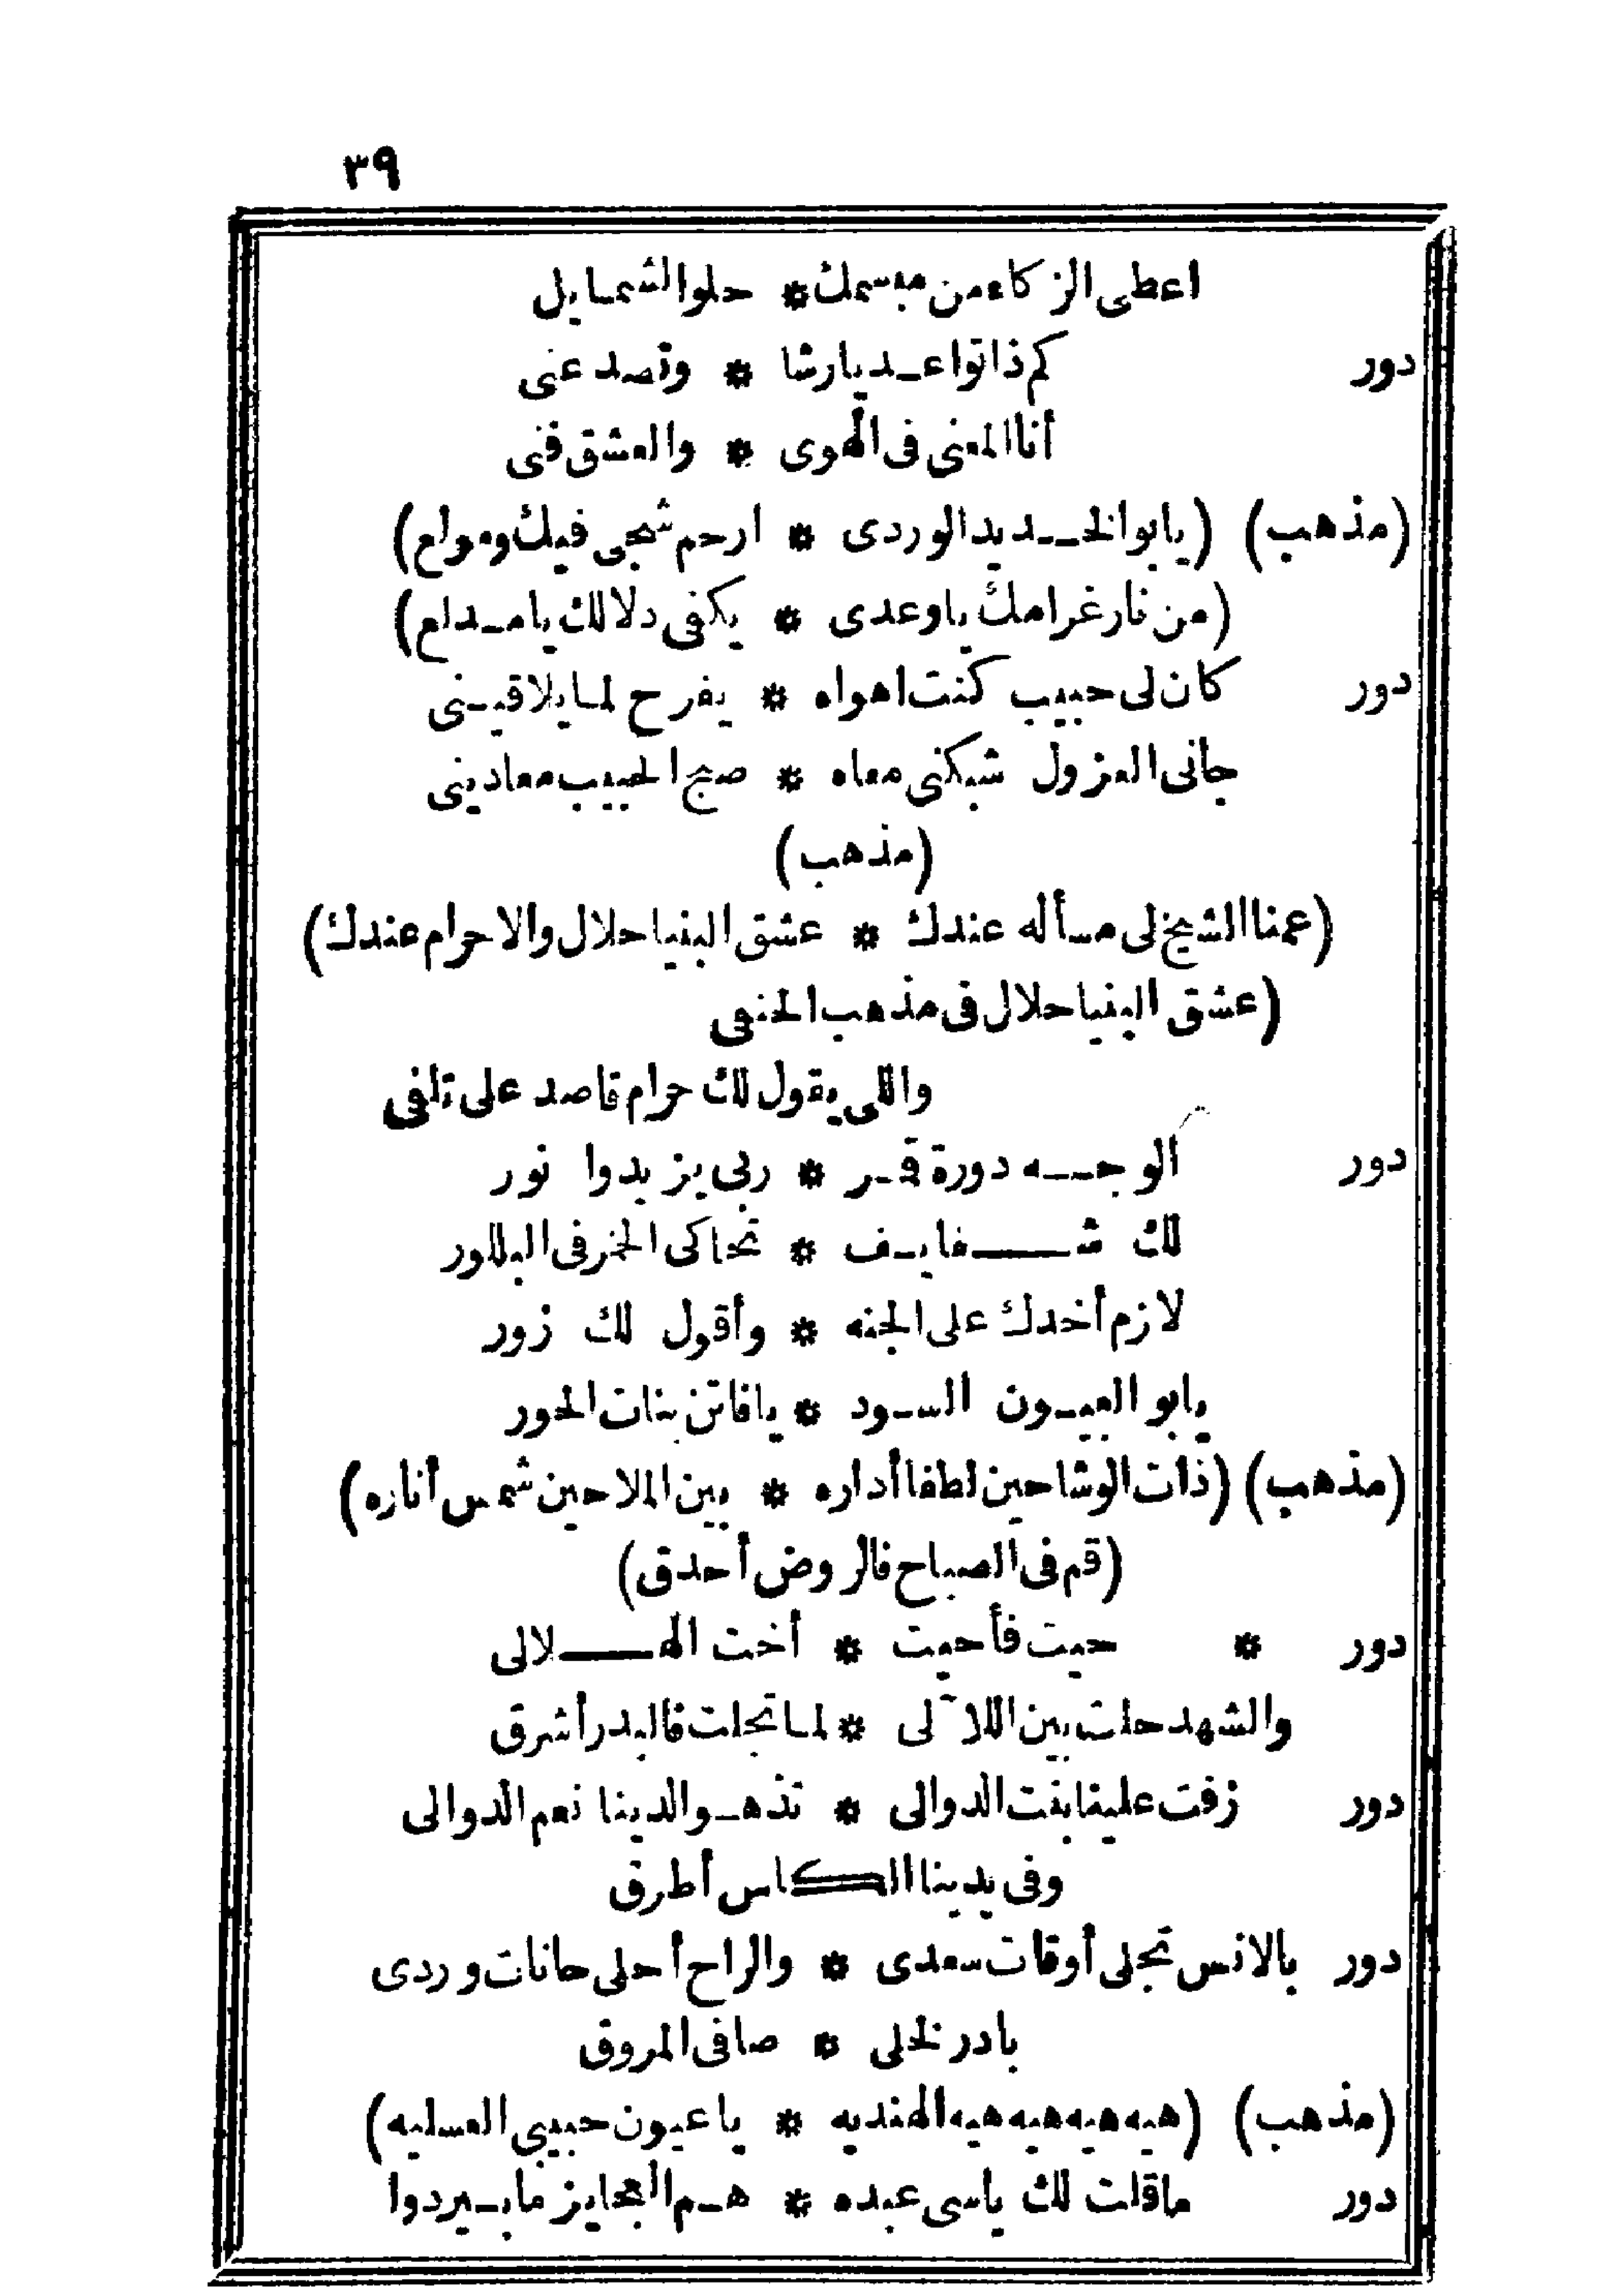 ٣٩
اعطى الزكاء من مبسمك * حلو الشمايل
دور كم ذا تواعد يا رشا * وتصد عنى
أنا المعنى فى الهوى * والعشق فنى
(مذهب) (يا بو الخديد الوردى * ارحم شجى فيك ومولع)
(من نار غرامك يا وعدى * يكفى دلالك يا مدلع)
دور كان لى حبيب كنت اهواه * يفرح لما يلاقينى
جانى العزول شبكنى معاه * صبح الحبيب معادينى
(مذهب)
(عمنا الشيخ لى مسأله عندك * عشق البنيا حلال والا حرام عندك)
(عشق البنيا حلال فى مذهب الحنفى
واللى يقول لك حرام قاصد على تلفى
دور الوجه دورة قمر * ربى يزيدوا نور
لك شفايف * تحاكى الخمر فى البللور
لازم أخدك على الجنه * وأقول لك زور
يابو العيون السود * يا فاتن بنات الحور
(مذهب) (ذات الوشاحين لطفا أداره * بين الملاحين شمس أناره)
(قم فى الصباح فالروض أحدق)
دور * حيت فأحيت * أخت الهلالى
والشهد حلت بين اللآلى * لما تجلت فالبدر أشرق
دور زفت علينا بنت الدوالى * تذهو الدينا نعم الدوالى
وفى يدينا الكاس أطرق
دور بالانس تجلى أوقات سعدى * والراح أحلى حانات وردى
بادر لخلى * صافى المروق
(مذهب) (هيه هيه هيه هيه الهنديه * يا عيون حبيبى العسليه)
دور ماقلت لك ياسى عبده * هم العجايز مابيردوا